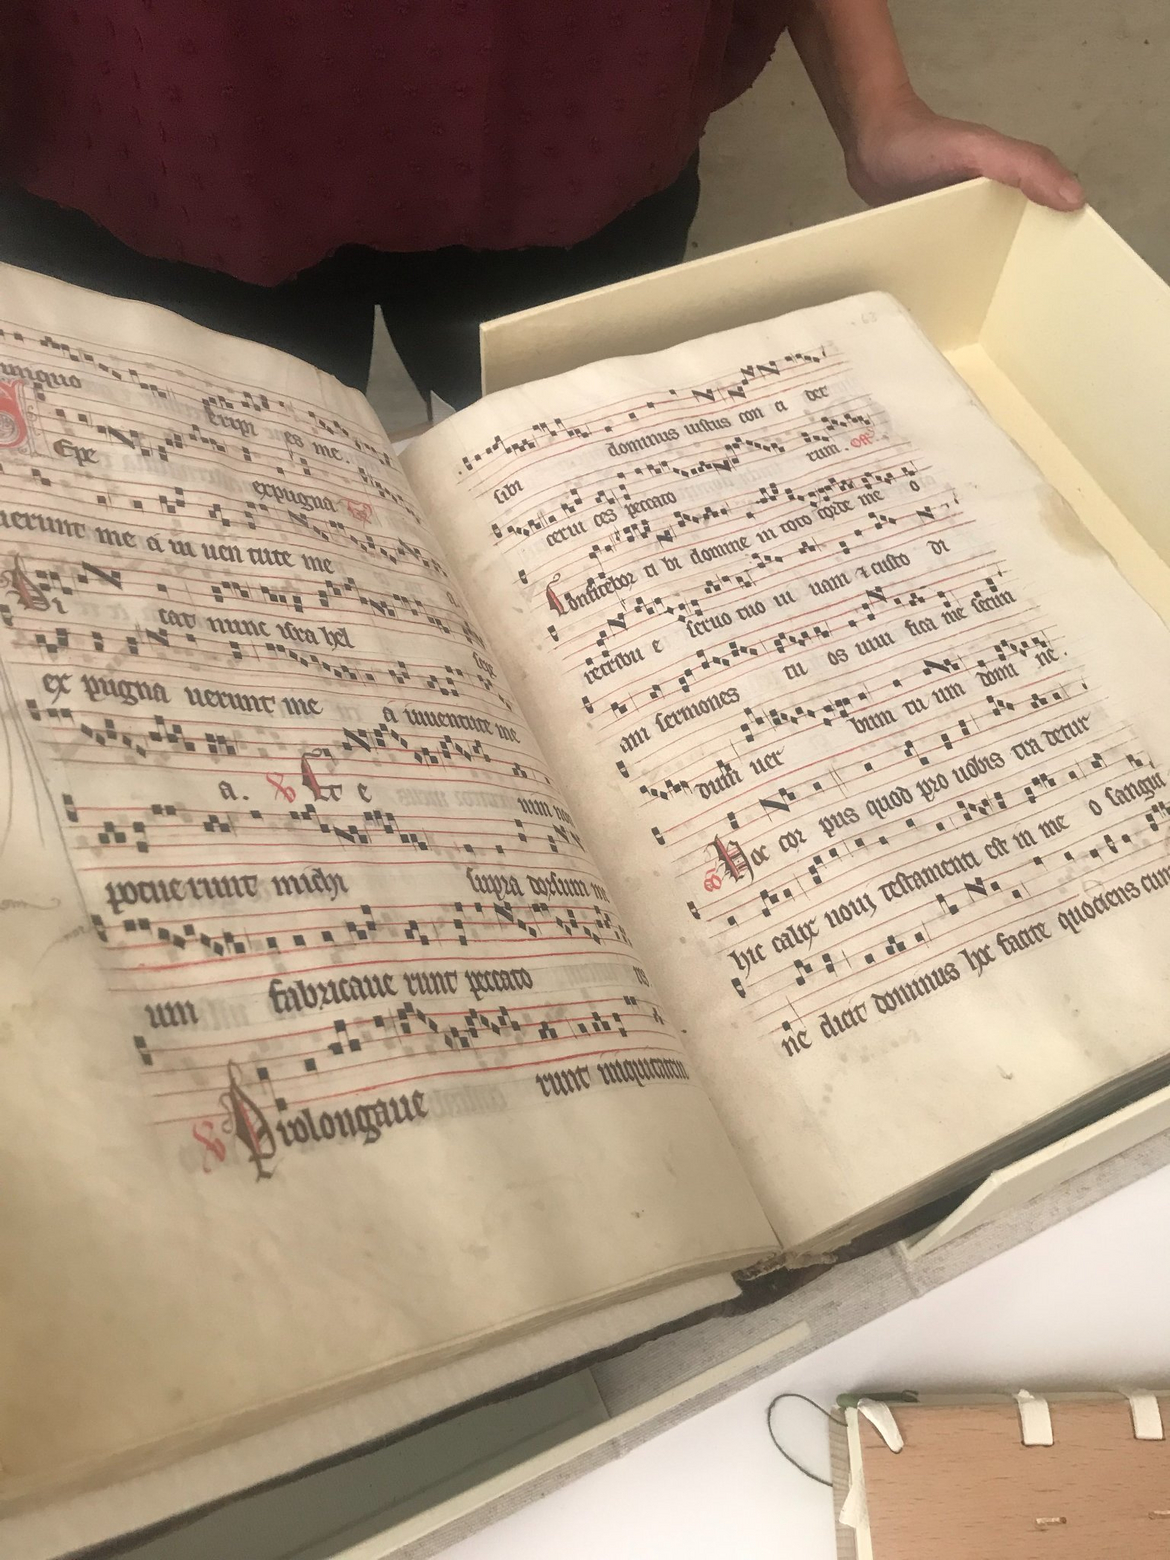 unquo eripi es me.
Sepe expugna
uerunt me a iu uen tute me
a. Di cat nunc isra hel sepe
ex pugna uerunt me a iuuentute me
a. Et e nim non
potuerunt michi supra dorsum me
um fabricaue runt peccato res
Prolongaue runt iniquitatem
63
sibi dominus iustus con ci det
ceruices peccato rum. Off
Confitebor ti bi domine in toto corde me o
retribu e seruo tuo ui uam et custo di
am sermones tu os uiui fica me secun
dum uer bum tu um domi ne.
Co Hoc cor pus quod pro uobis tra detur
hic calix noui testamenti est in me o sangui
ne dicit dominus hoc facite quociens cum